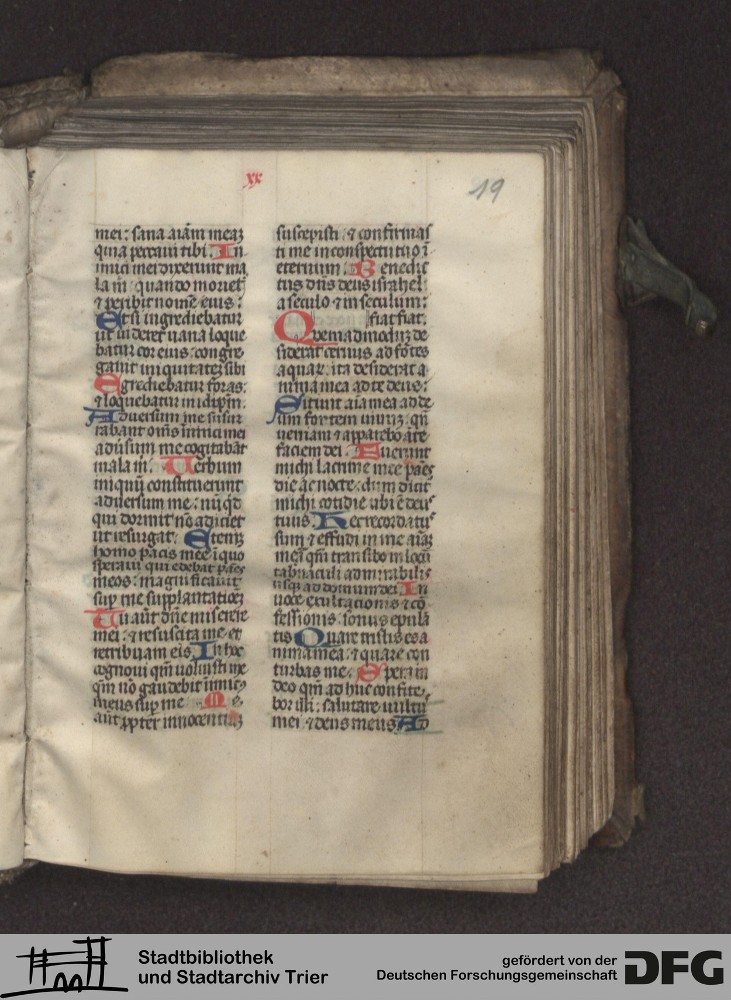 xx
19
mei: sana aīam meaꝫ
quia peccaui tibi. In
imici mei dixerunt ma
la m̄: quando moriet᷑
⁊ peribit nomē eius:
Et si ingrediebatur
ut uideret uana loque
batur cor eius: congre
gauit iniquitatē sibi
Egrediebatur foras:
⁊ loquebatur in idipm̄.
Aduersum me susur
rabant oms̄ inimici mei
adu̓sum me cogitabāt
mala m̄. Uerbum
iniquū constituerunt
aduersum me: nūqd
qui dormit nō adiciet
ut resurgat. Etenī
homo pacis mee ī quo
speraui qui edebat panes
meos: magnificauit
suꝑ me supplantationē
Tu aūt dn̄e miserere
mei: ⁊ resuscita me et
retribuam eis. In hoc
cognoui qm̄ uoluisti me
qm̄ nō gaudebit inimic᷒
meus suꝑ me. Me
aūt ꝓpter innocentiā
suscepisti: ⁊ confirmas
ti me in conspectu tuo ī
eternum. Benedic
tus dn̄s deus isrl̄
a seculo ⁊ in seculum:
fiat fiat.
Quemadmodū de
siderat ceruus ad fōtes
aquar̄: ita desiderat a
nima mea ad te deus:
Sitiuit aīa mea ad de
um fortem uiuū: qn̄
ueniam ⁊ apparebo āte
faciem dei. Fuerunt
michi lacrime mee panes
die ac nocte: dum dicit᷑
michi cotidie ubi ē deus
tuus. Hec recordatus
sum ⁊ effudi in me aīaꝫ
meā qm̄ transibo in locū
tab̄naculi admirabilis
usqꝫ ad domum dei. In
uoce exultacionis ⁊ cō
fessionis: sonus epulā
tis Quare tristis es a
nima mea: ⁊ quare con
turbas me. Spera in
deo qm̄ adhuc confite
bor illi: salutare uultus
mei ⁊ deus meus. Ad
Stadtbibliothek
und Stadtarchiv Trier
gefördert von der
Deutschen Forschungsgemeinschaft
DFG